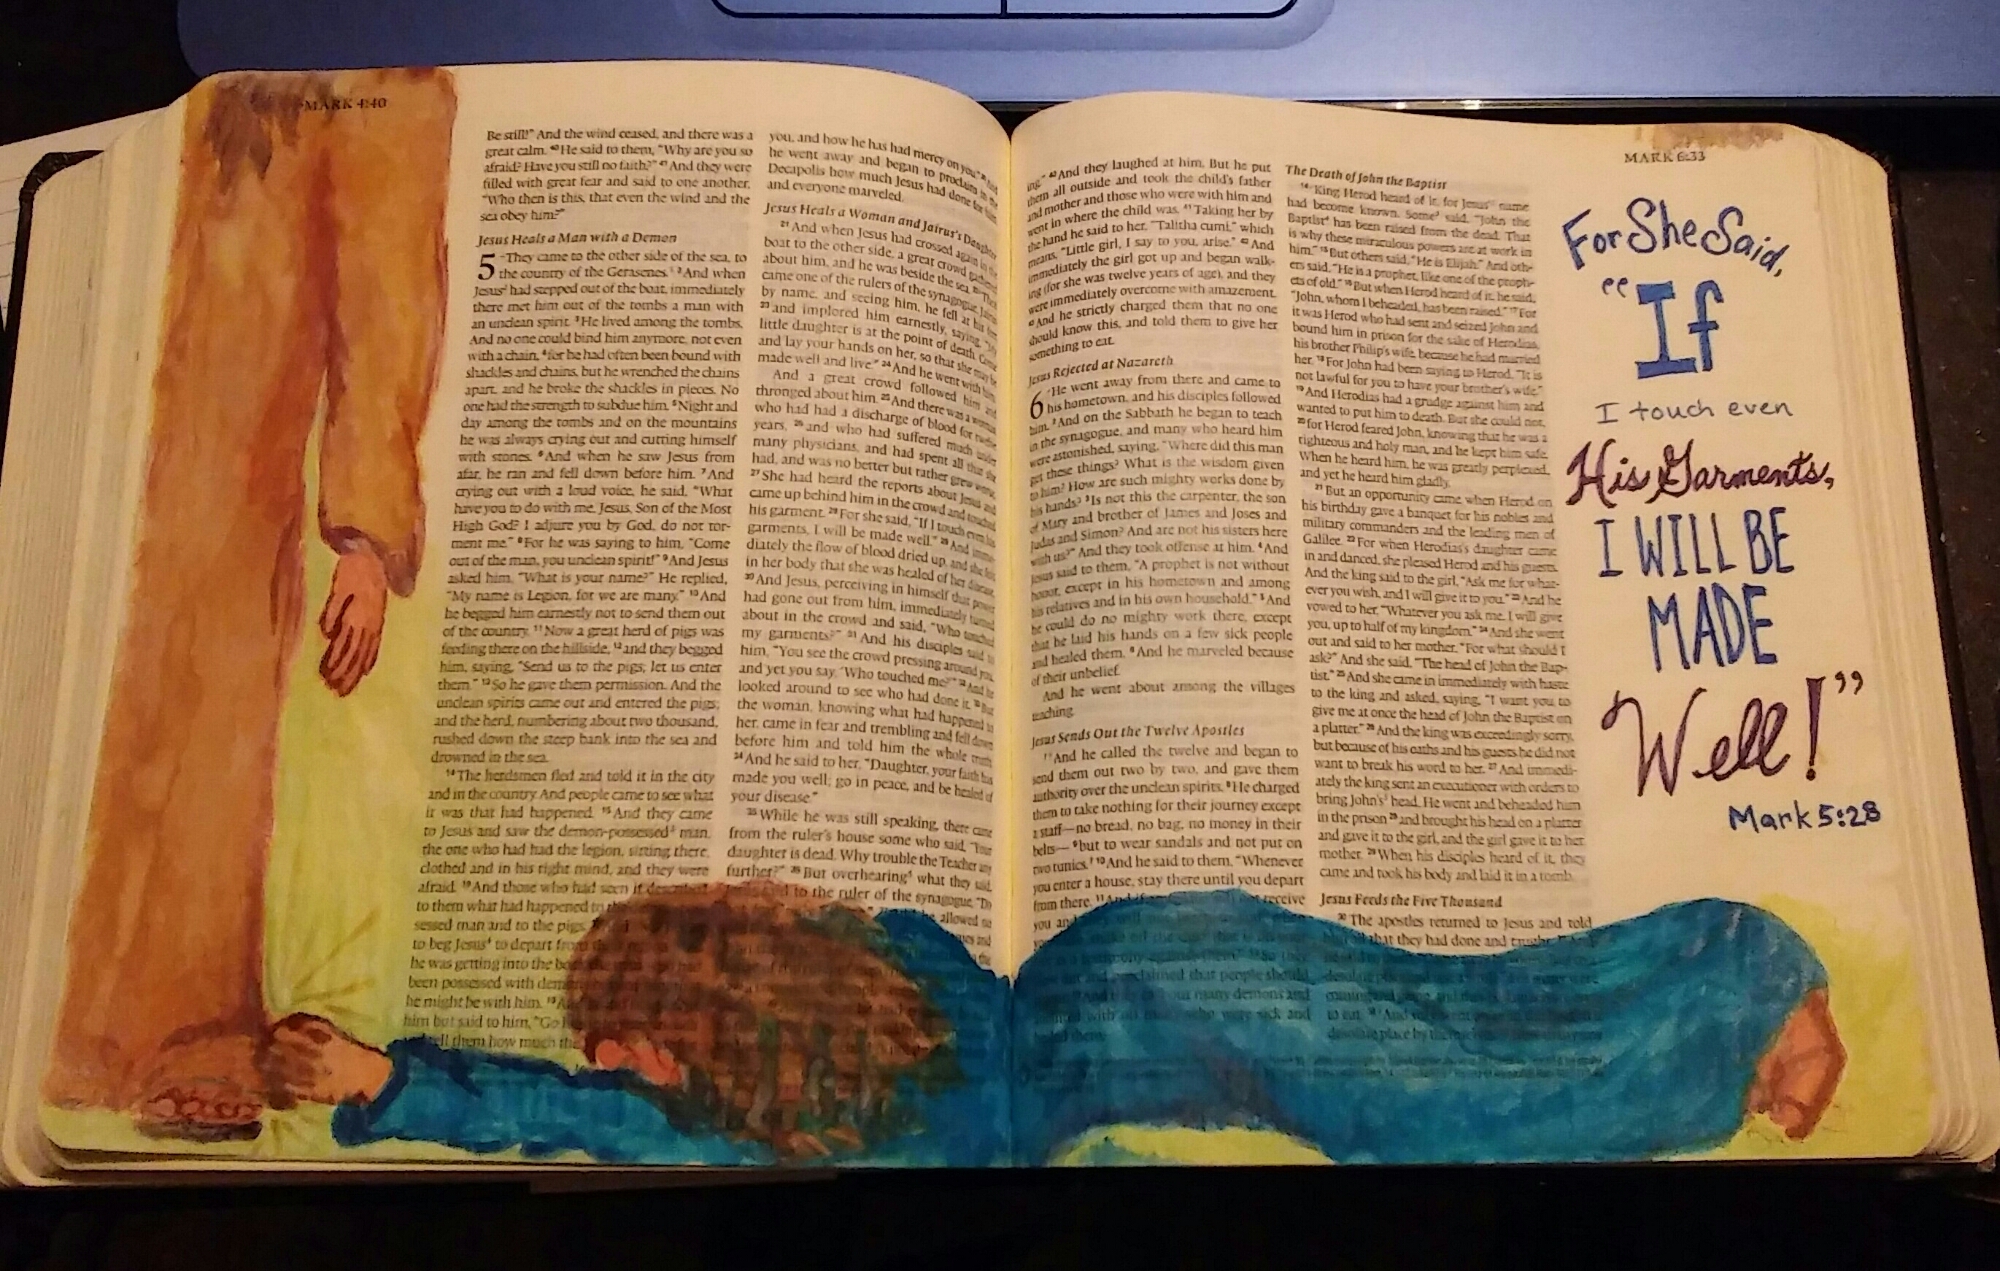 MARK 4:40
Be still!” And the wind ceased, and there was a
great calm. 40 He said to them, “Why are you so
afraid? Have you still no faith?” 41 And they were
filled with great fear and said to one another,
“Who then is this, that even the wind and the
sea obey him?”
Jesus Heals a Man with a Demon
5 They came to the other side of the sea, to
the country of the Gerasenes. 2 And when
Jesus had stepped out of the boat, immediately
there met him out of the tombs a man with
an unclean spirit. 3 He lived among the tombs.
And no one could bind him anymore, not even
with a chain, 4 for he had often been bound with
shackles and chains, but he wrenched the chains
apart, and he broke the shackles in pieces. No
one had the strength to subdue him. 5 Night and
day among the tombs and on the mountains
he was always crying out and cutting himself
with stones. 6 And when he saw Jesus from
afar, he ran and fell down before him. 7 And
crying out with a loud voice, he said, “What
have you to do with me, Jesus, Son of the Most
High God? I adjure you by God, do not tor-
ment me.” 8 For he was saying to him, “Come
out of the man, you unclean spirit!” 9 And Jesus
asked him, “What is your name?” He replied,
“My name is Legion, for we are many.” 10 And
he begged him earnestly not to send them out
of the country. 11 Now a great herd of pigs was
feeding there on the hillside, 12 and they begged
him, saying, “Send us to the pigs; let us enter
them.” 13 So he gave them permission. And the
unclean spirits came out and entered the pigs;
and the herd, numbering about two thousand,
rushed down the steep bank into the sea and
drowned in the sea.
14 The herdsmen fled and told it in the city
and in the country. And people came to see what
it was that had happened. 15 And they came
to Jesus and saw the demon-possessed man,
the one who had had the legion, sitting there,
clothed and in his right mind, and they were
afraid. 16 And those who had seen it described
to them what had happened to
sessed man and to the pigs.
to beg Jesus to depart from
he was getting into the boat
been possessed with demons
he might be with him. 19 And
him but said to him, “Go
tell them how much the
you, and how he has had mercy on you.” 20 And
he went away and began to proclaim in the
Decapolis how much Jesus had done for him,
and everyone marveled.
Jesus Heals a Woman and Jairus's Daughter
21 And when Jesus had crossed again in the
boat to the other side, a great crowd gathered
about him, and he was beside the sea. 22 Then
came one of the rulers of the synagogue, Jairus
by name, and seeing him, he fell at his feet
23 and implored him earnestly, saying, “My
little daughter is at the point of death. Come
and lay your hands on her, so that she may be
made well and live.” 24 And he went with him.
And a great crowd followed him and
thronged about him. 25 And there was a woman
who had had a discharge of blood for twelve
years, 26 and who had suffered much under
many physicians, and had spent all that she
had, and was no better but rather grew worse.
27 She had heard the reports about Jesus and
came up behind him in the crowd and touched
his garment. 28 For she said, “If I touch even his
garments, I will be made well.” 29 And imme-
diately the flow of blood dried up, and she felt
in her body that she was healed of her disease.
30 And Jesus, perceiving in himself that power
had gone out from him, immediately turned
about in the crowd and said, “Who touched
my garments?” 31 And his disciples said to
him, “You see the crowd pressing around you,
and yet you say, ‘Who touched me?’” 32 And he
looked around to see who had done it. 33 But
the woman, knowing what had happened to
her, came in fear and trembling and fell down
before him and told him the whole truth.
34 And he said to her, “Daughter, your faith has
made you well; go in peace, and be healed of
your disease.”
35 While he was still speaking, there came
from the ruler's house some who said, “Your
daughter is dead. Why trouble the Teacher any
further?” 36 But overhearing what they said,
to the ruler of the synagogue, “Do
he allowed no
ing.” 40 And they laughed at him. But he put
them all outside and took the child's father
and mother and those who were with him and
went in where the child was. 41 Taking her by
the hand he said to her, “Talitha cumi,” which
means, “Little girl, I say to you, arise.” 42 And
immediately the girl got up and began walk-
ing (for she was twelve years of age), and they
were immediately overcome with amazement.
43 And he strictly charged them that no one
should know this, and told them to give her
something to eat.
Jesus Rejected at Nazareth
6 He went away from there and came to
his hometown, and his disciples followed
him. 2 And on the Sabbath he began to teach
in the synagogue, and many who heard him
were astonished, saying, “Where did this man
get these things? What is the wisdom given
to him? How are such mighty works done by
his hands? 3 Is not this the carpenter, the son
of Mary and brother of James and Joses and
Judas and Simon? And are not his sisters here
with us?” And they took offense at him. 4 And
Jesus said to them, “A prophet is not without
honor, except in his hometown and among
his relatives and in his own household.” 5 And
he could do no mighty work there, except
that he laid his hands on a few sick people
and healed them. 6 And he marveled because
of their unbelief.
And he went about among the villages
teaching.
Jesus Sends Out the Twelve Apostles
7 And he called the twelve and began to
send them out two by two, and gave them
authority over the unclean spirits. 8 He charged
them to take nothing for their journey except
a staff—no bread, no bag, no money in their
belts— 9 but to wear sandals and not put on
two tunics. 10 And he said to them, “Whenever
you enter a house, stay there until you depart
from there. 11 And if receive
you and
and proclaimed that people should
many demons and
with oil many who were sick and
The Death of John the Baptist
14 King Herod heard of it, for Jesus' name
had become known. Some said, “John the
Baptist has been raised from the dead. That
is why these miraculous powers are at work in
him.” 15 But others said, “He is Elijah.” And oth-
ers said, “He is a prophet, like one of the proph-
ets of old.” 16 But when Herod heard of it, he said,
“John, whom I beheaded, has been raised.” 17 For
it was Herod who had sent and seized John and
bound him in prison for the sake of Herodias,
his brother Philip's wife, because he had married
her. 18 For John had been saying to Herod, “It is
not lawful for you to have your brother's wife.”
19 And Herodias had a grudge against him and
wanted to put him to death. But she could not,
20 for Herod feared John, knowing that he was a
righteous and holy man, and he kept him safe.
When he heard him, he was greatly perplexed,
and yet he heard him gladly.
21 But an opportunity came when Herod on
his birthday gave a banquet for his nobles and
military commanders and the leading men of
Galilee. 22 For when Herodias's daughter came
in and danced, she pleased Herod and his guests.
And the king said to the girl, “Ask me for what-
ever you wish, and I will give it to you.” 23 And he
vowed to her, “Whatever you ask me, I will give
you, up to half of my kingdom.” 24 And she went
out and said to her mother, “For what should I
ask?” And she said, “The head of John the Bap-
tist.” 25 And she came in immediately with haste
to the king and asked, saying, “I want you to
give me at once the head of John the Baptist on
a platter.” 26 And the king was exceedingly sorry,
but because of his oaths and his guests he did not
want to break his word to her. 27 And immedi-
ately the king sent an executioner with orders to
bring John's head. He went and beheaded him
in the prison 28 and brought his head on a platter
and gave it to the girl, and the girl gave it to her
mother. 29 When his disciples heard of it, they
came and took his body and laid it in a tomb.
Jesus Feeds the Five Thousand
30 The apostles returned to Jesus and told
him all that they had done and taught.
MARK 6:33
For She Said,
“If
I touch even
His Garments,
I WILL BE
MADE
Well!”
Mark 5:28